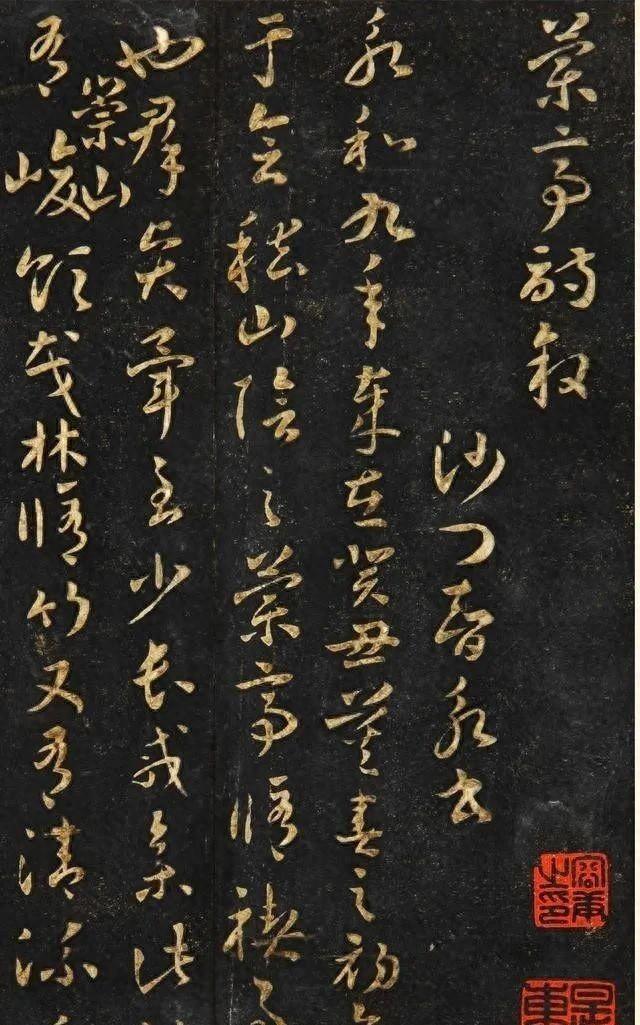 蘭亭詩叙
沙門智永書
永和九年歲在癸丑暮春之初
于會稽山陰之蘭亭脩禊事
也群賢畢至少長咸集此
有崇山峻領茂林脩竹又有清流